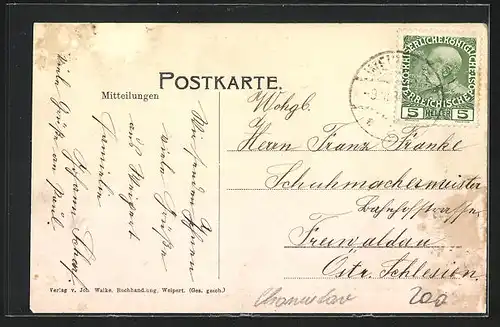 POSTKARTE.
Mitteilungen
KAISERLICHE KÖNIGLICHE
ÖSTERREICHISCHE POST
5 HELLER 5
WEIPERT
Wohgb.
Herrn Franz Franke
Schuhmachermeister
Bahnhofstrasse
Freiwaldau
Östr. Schlesien.
Wir senden Ihnen
viele Grüße
aus Weipert
Familie
Johann Scharf
viele Grüße an Paul
Verlag v. Joh. Walke, Buchhandlung, Weipert. (Ges. gesch.)
200